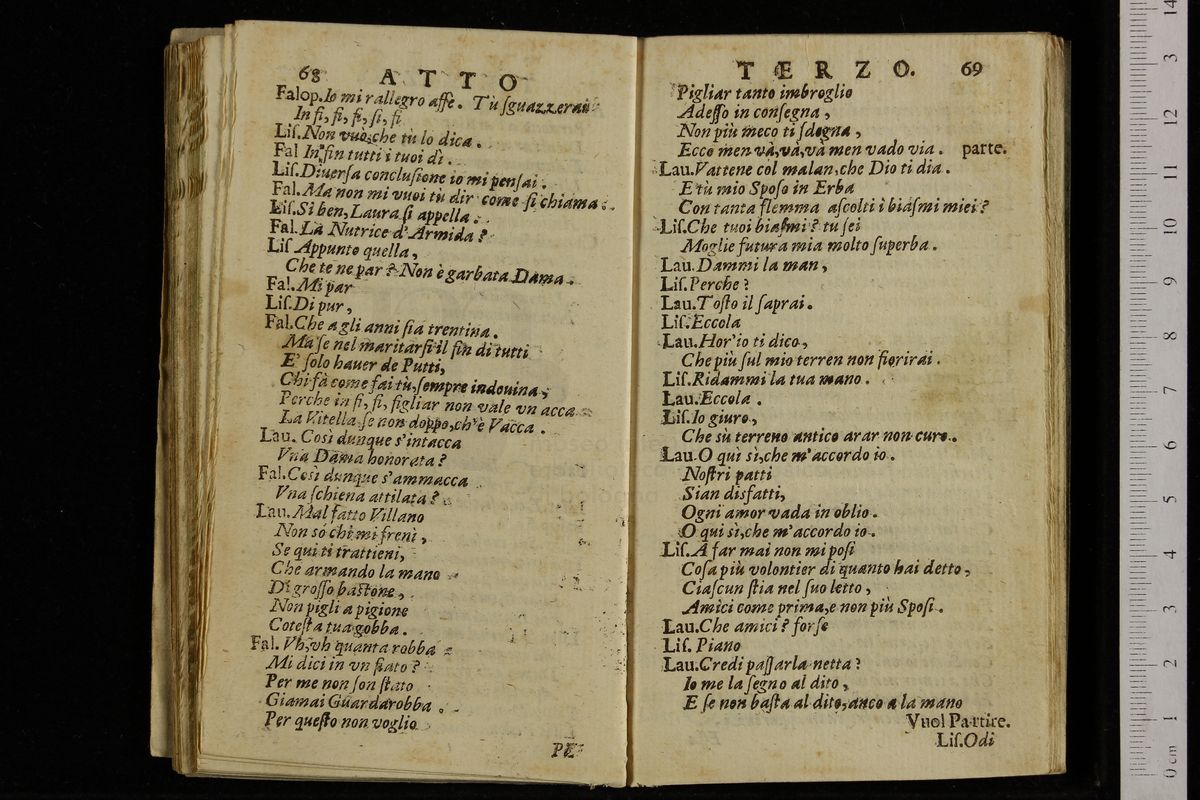 68 ATTO
Falop. Io mi rallegro affè. Tù ſguazzerai
In ſi, ſi, ſi, ſi, ſi
Liſ. Non vuò, che tù lo dica.
Fal In ſin tutti i tuoi dì.
Liſ. Diuerſa concluſione io mi penſai.
Fal. Ma non mi vuoi tù dir come ſi chiama?
Liſ. Si ben, Laura ſi appella.
Fal. La Nutrice d'Armida?
Liſ Appunto quella,
Che te ne par? Non è garbata Dama.
Fal. Mi par
Liſ. Di pur,
Fal. Che agli anni ſia trentina.
Ma ſe nel maritarſi il fin di tutti
E' ſolo hauer de Putti,
Chi fà come fai tù, ſempre indouina;
Perche in ſi, ſi, figliar non vale vn acca
La Vitella ſe non doppo, ch'è Vacca.
Lau. Così dunque s'intacca
Vna Dama honorata?
Fal. Così dunque s'ammacca
Vna ſchiena attilata?
Lau. Mal fatto Villano
Non sò chi mi freni,
Se qui ti trattieni,
Che armando la mano
Di groſſo baſtone,
Non pigli a pigione
Coteſta tua gobba.
Fal. Vh, vh quanta robba
Mi dici in vn fiato?
Per me non ſon ſtato
Giamai Guardarobba.
Per queſto non voglio
PE
TÆRZO. 69
Pigliar tanto imbroglio
Adeſſo in conſegna,
Non più meco ti ſdegna,
Ecco men và, và, và men vado via. parte.
Lau. Vattene col malan, che Dio ti dia.
E tù mio Spoſo in Erba
Con tanta flemma aſcolti i biaſmi miei?
Liſ. Che tuoi biaſmi? tu ſei
Moglie futura mia molto ſuperba.
Lau. Dammi la man,
Liſ. Perche?
Lau. Toſto il ſaprai.
Liſ. Eccola
Lau. Hor'io ti dico,
Che più ſul mio terren non fiorirai.
Liſ. Ridammi la tua mano.
Lau. Eccola.
Liſ. Io giuro,
Che sù terreno antico arar non curo.
Lau. O qui sì, che m'accordo io.
Noſtri patti
Sian disfatti,
Ogni amor vada in oblio.
O qui sì, che m'accordo io.
Liſ. A far mai non mi poſi
Coſa più volontier di quanto hai detto,
Ciaſcun ſtia nel ſuo letto,
Amici come prima, e non più Spoſi.
Lau. Che amici? forſe
Liſ. Piano
Lau. Credi paſſarla netta?
Io me la ſegno al dito,
E ſe non baſta al dito, anco a la mano
Vuol Partire.
Liſ. Odi
0 cm 1 2 3 4 5 6 7 8 9 10 11 12 13 14